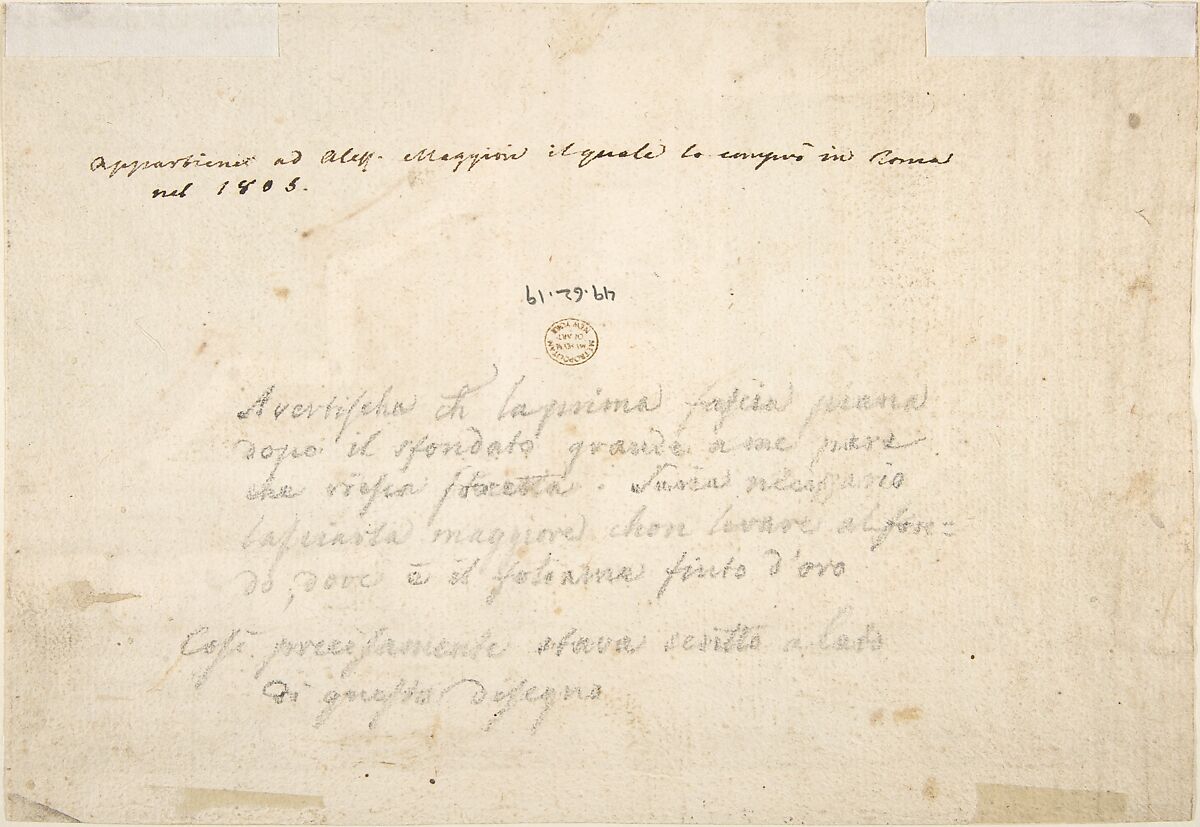 appartiene ad Aless. Maggiori il quale lo comprò in Roma
nel 1803.
49.62.19
METROPOLITAN
MUSEUM
OF ART
NEW YORK
Avertischa ch la prima fascia piana
dopo il sfondato grande a me pare
che riesca stretta. necessario
lasciarla maggiore chon levare al fon=
do, dove è il foliame finto d'oro
Così precisamente stava scritto a lato
di questo disegno